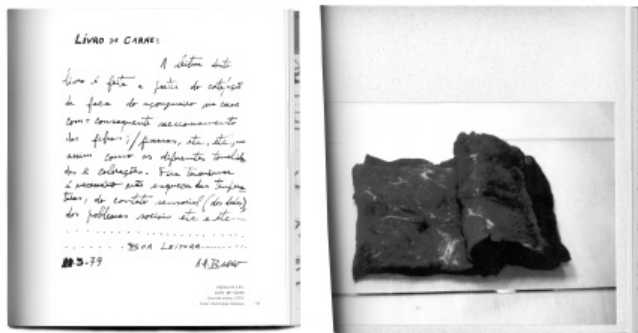 LIVRO DE CARNE:
A leitura deste
livro é feita a partir do
da faca do açougueiro na carne
com o consequente seccionamento
das fibras; / fissuras, etc, etc, —
assim como as diferentes tonalida
des e colorações. Para terminar
é necessário não esquecer das tempera
turas, do contato sensorial (dos dedos)
dos problemas sociais etc e etc
BOA LEITURA
.3.79